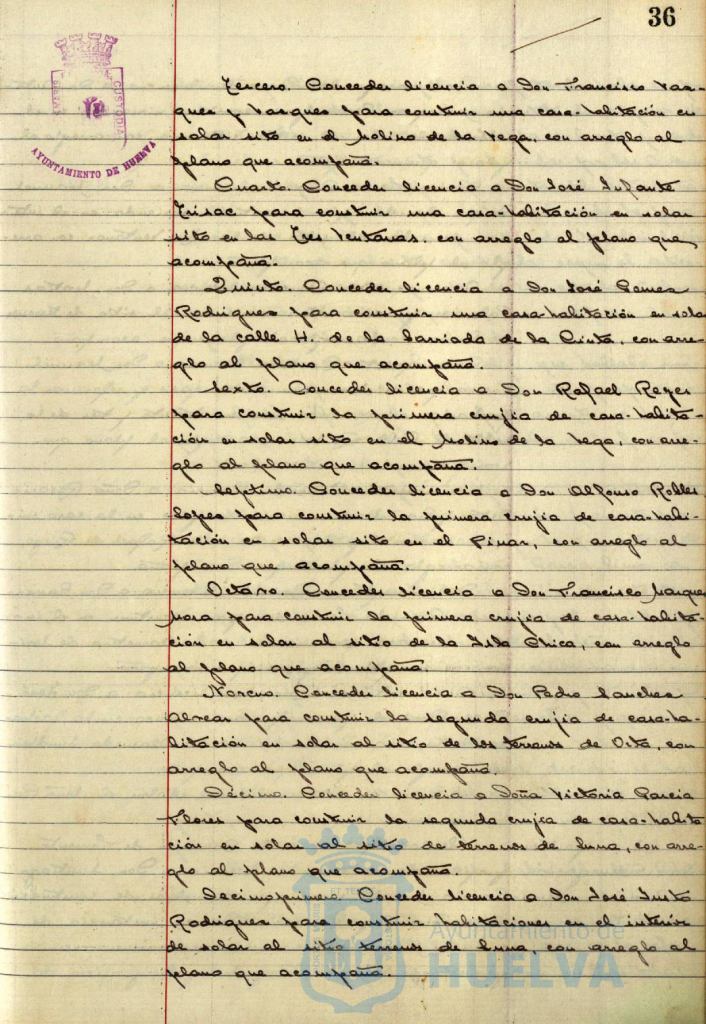 36
PORTUS CUSTODIA
AYUNTAMIENTO DE HUELVA
Tercero. Conceder licencia a Don Francisco Vaz-
quez y Vazquez para construir una casa-habitación en
solar sito en el Molino de la Vega, con arreglo al
plano que acompaña.
Cuarto. Conceder licencia a Don José Infante
para construir una casa-habitación en solar
sito en las Tres Ventanas, con arreglo al plano que
acompaña.
Quinto. Conceder licencia a Don José Gomez
Rodriguez para construir una casa-habitación en solar
de la calle H. de la barriada de la Cinta, con arre-
glo al plano que acompaña.
Sexto. Conceder licencia a Don Rafael Reyes
para construir la primera crujia de casa-habita-
ción en solar sito en el Molino de la Vega, con arre-
glo al plano que acompaña.
Septimo. Conceder licencia a Don Alfonso Robles
Lopez para construir la primera crujia de casa-habi-
tación en solar sito en el Pinar, con arreglo al
plano que acompaña.
Octavo. Conceder licencia a Don Francisco Marquez
Mora para construir la primera crujia de casa-habita-
ción en solar al sitio de la Isla Chica, con arreglo
al plano que acompaña.
Noveno. Conceder licencia a Don Pedro Sanchez
para construir la segunda crujia de casa-ha-
bitación en solar al sitio de los terrenos de Osta, con
arreglo al plano que acompaña.
Décimo. Conceder licencia a Doña Victoria Garcia
Flores para construir la segunda crujia de casa-habita
ción en solar al sitio de terrenos de Luna, con arre-
glo al plano que acompaña.
Decimoprimero. Conceder licencia a Don José Justo
Rodriguez para construir habitaciones en el interior
de solar al sitio terrenos de Luna, con arreglo al
plano que acompaña.
Ayuntamiento de
HUELVA